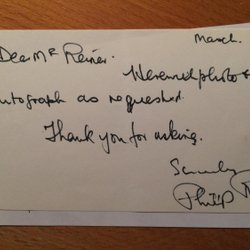 March.
Dear Mr Reiner.
Herewith photo &
autograph as requested.
Thank you for asking.
Sincerely
Philip